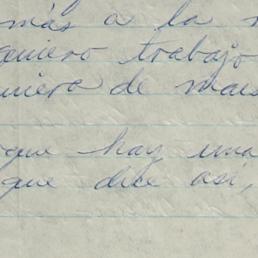 más a la
quiero trabajo
de
que hay una
que dice así,